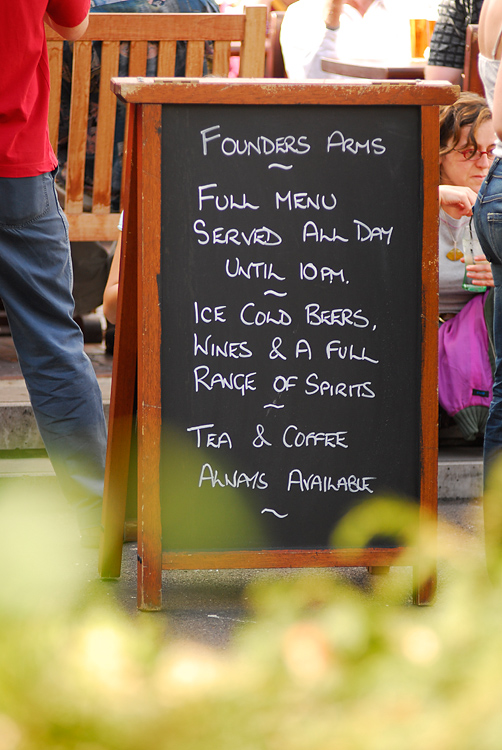 FOUNDERS ARMS
~
FULL MENU
SERVED ALL DAY
UNTIL 10PM.
~
ICE COLD BEERS,
WINES & A FULL
RANGE OF SPIRITS
~
TEA & COFFEE
ALWAYS AVAILABLE
~